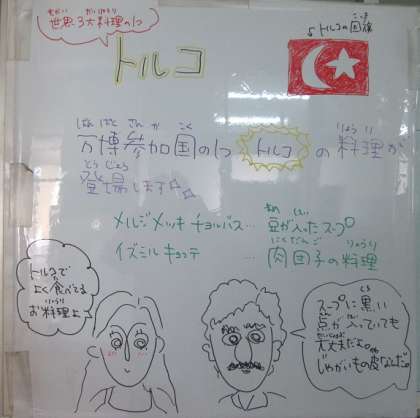 世界3大料理の1つ
トルコ
トルコの国旗
万博参加国の1つ トルコ の料理が
登場します☆☆
メルジメッキ チョルバス… 豆が入ったスープ
イズミル キョフテ … 肉団子の料理
トルコで
よく食べてる
お料理よ
スープに黒い
豆が入っていても
大丈夫だよ。
じゃがいもの皮なんだ。